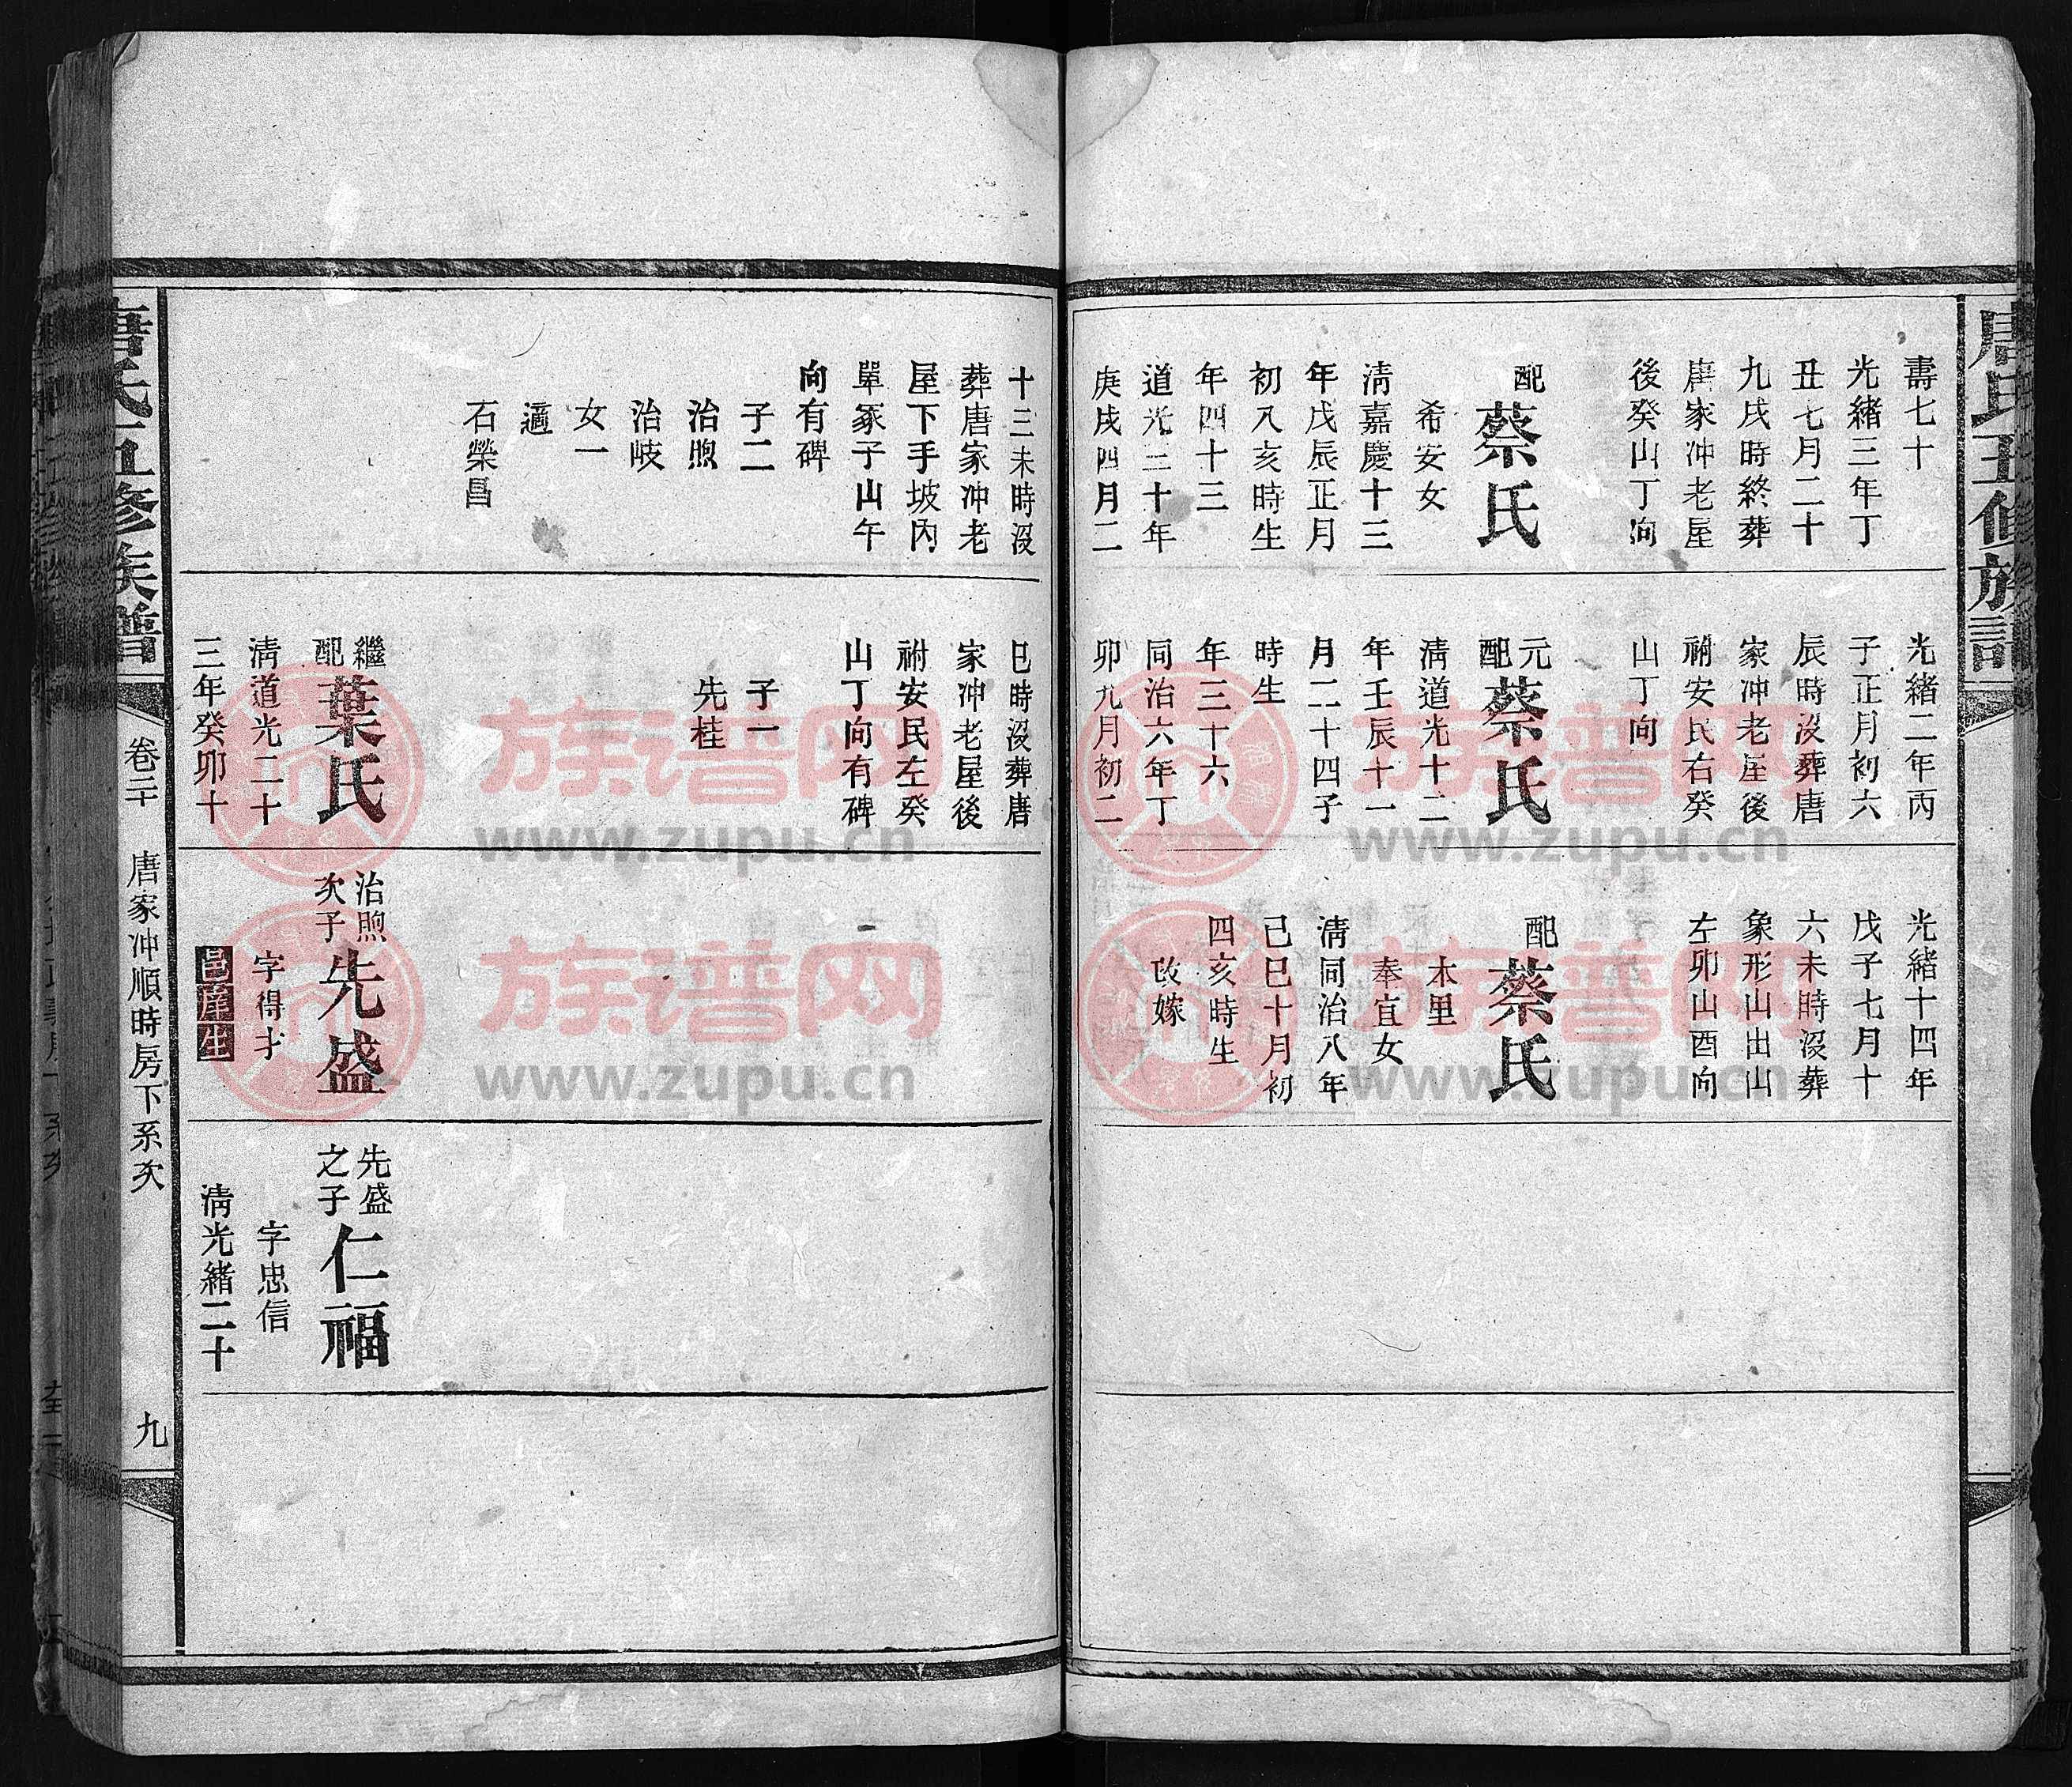 唐氏五修族譜
壽七十
光緒三年丁
丑七月二十
九戌時終葬
唐家冲老屋
後癸山丁向
配
蔡氏
希安女
清嘉慶十三
年戊辰正月
初八亥時生
年四十三
道光三十年
庚戌四月二
光緒二年丙
子正月初六
辰時沒葬唐
家冲老屋後
祔安民右癸
山丁向
元配
蔡氏
清道光十二
年壬辰十一
月二十四子
時生
年三十六
同治六年丁
卯九月初二
光緒十四年
戊子七月十
六未時沒葬
象形山出山
左卯山酉向
配
蔡氏
木里
奉宜女
清同治八年
己巳十月初
四亥時生
改嫁
十三未時沒
葬唐家冲老
屋下手坡內
單冢子山午
向有碑
子二
治煦
治岐
女一
適
石榮昌
巳時沒葬唐
家冲老屋後
祔安民左癸
山丁向有碑
子一
先桂
繼配
葉氏
清道光二十
三年癸卯十
治煦次子
先盛
字得才
邑庠生
先盛之子
仁福
字忠信
清光緒二十
唐氏五修族譜
卷二十
唐家冲順時房下系次
九
族谱网
www.zupu.cn
族谱网
www.zupu.cn
族谱网
www.zupu.cn
族谱网
www.zupu.cn